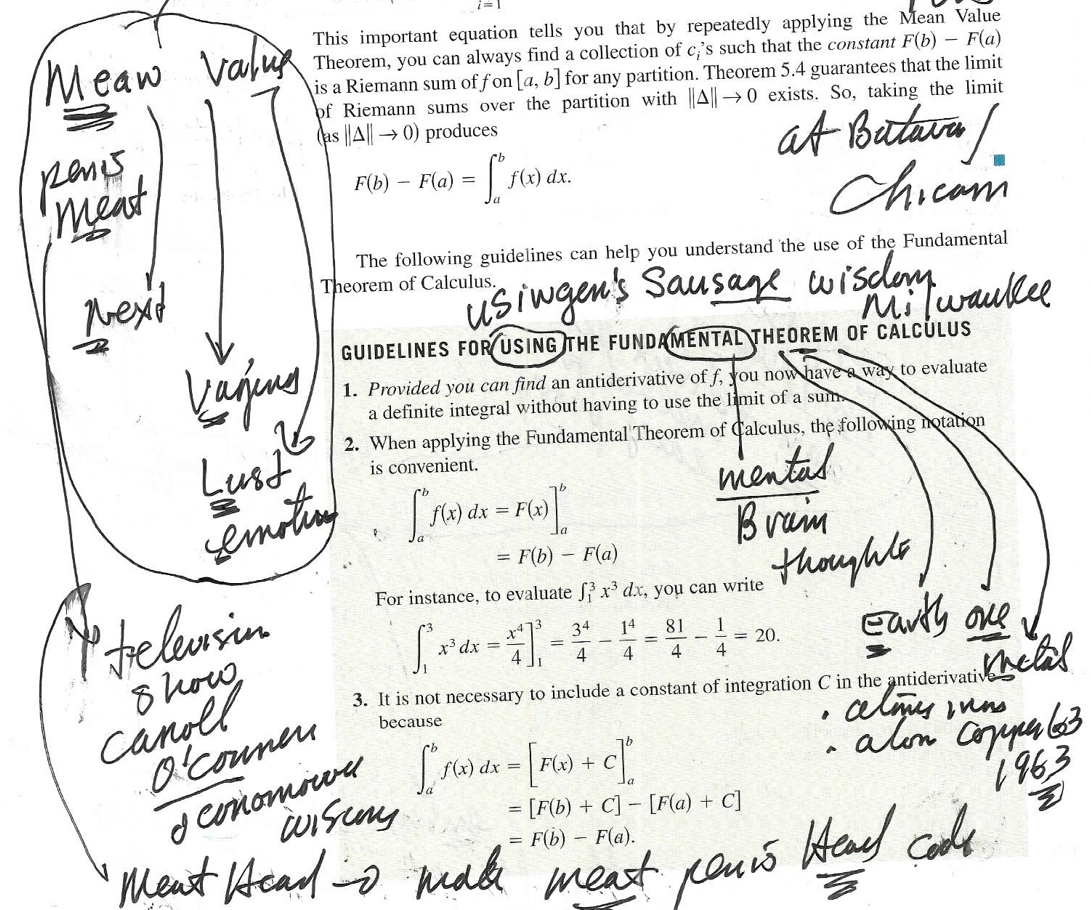 i=1
This important equation tells you that by repeatedly applying the Mean Value
Theorem, you can always find a collection of cᵢ's such that the constant F(b) − F(a)
is a Riemann sum of f on [a, b] for any partition. Theorem 5.4 guarantees that the limit
of Riemann sums over the partition with ||Δ|| → 0 exists. So, taking the limit
(as ||Δ|| → 0) produces
F(b) − F(a) = ∫ₐᵇ f(x) dx.
The following guidelines can help you understand the use of the Fundamental
Theorem of Calculus.
Mean Value
penis
Meat
next
Lust
emotion
at
Sausage wisdom
Milwaukee
GUIDELINES FOR USING THE FUNDAMENTAL THEOREM OF CALCULUS
1. Provided you can find an antiderivative of f, you now have a way to evaluate
a definite integral without having to use the limit of a sum.
2. When applying the Fundamental Theorem of Calculus, the following notation
is convenient.
∫ₐᵇ f(x) dx = F(x)]ₐᵇ
= F(b) − F(a)
For instance, to evaluate ∫₁³ x³ dx, you can write
∫₁³ x³ dx = x⁴/4]₁³ = 3⁴/4 − 1⁴/4 = 81/4 − 1/4 = 20.
3. It is not necessary to include a constant of integration C in the antiderivative
because
∫ₐᵇ f(x) dx = [F(x) + C]ₐᵇ
= [F(b) + C] − [F(a) + C]
= F(b) − F(a).
mental
Brain
thoughts
Earth ore
metal
63
1963
television
show
O'Conner
Meat Head → male meat penis Head code